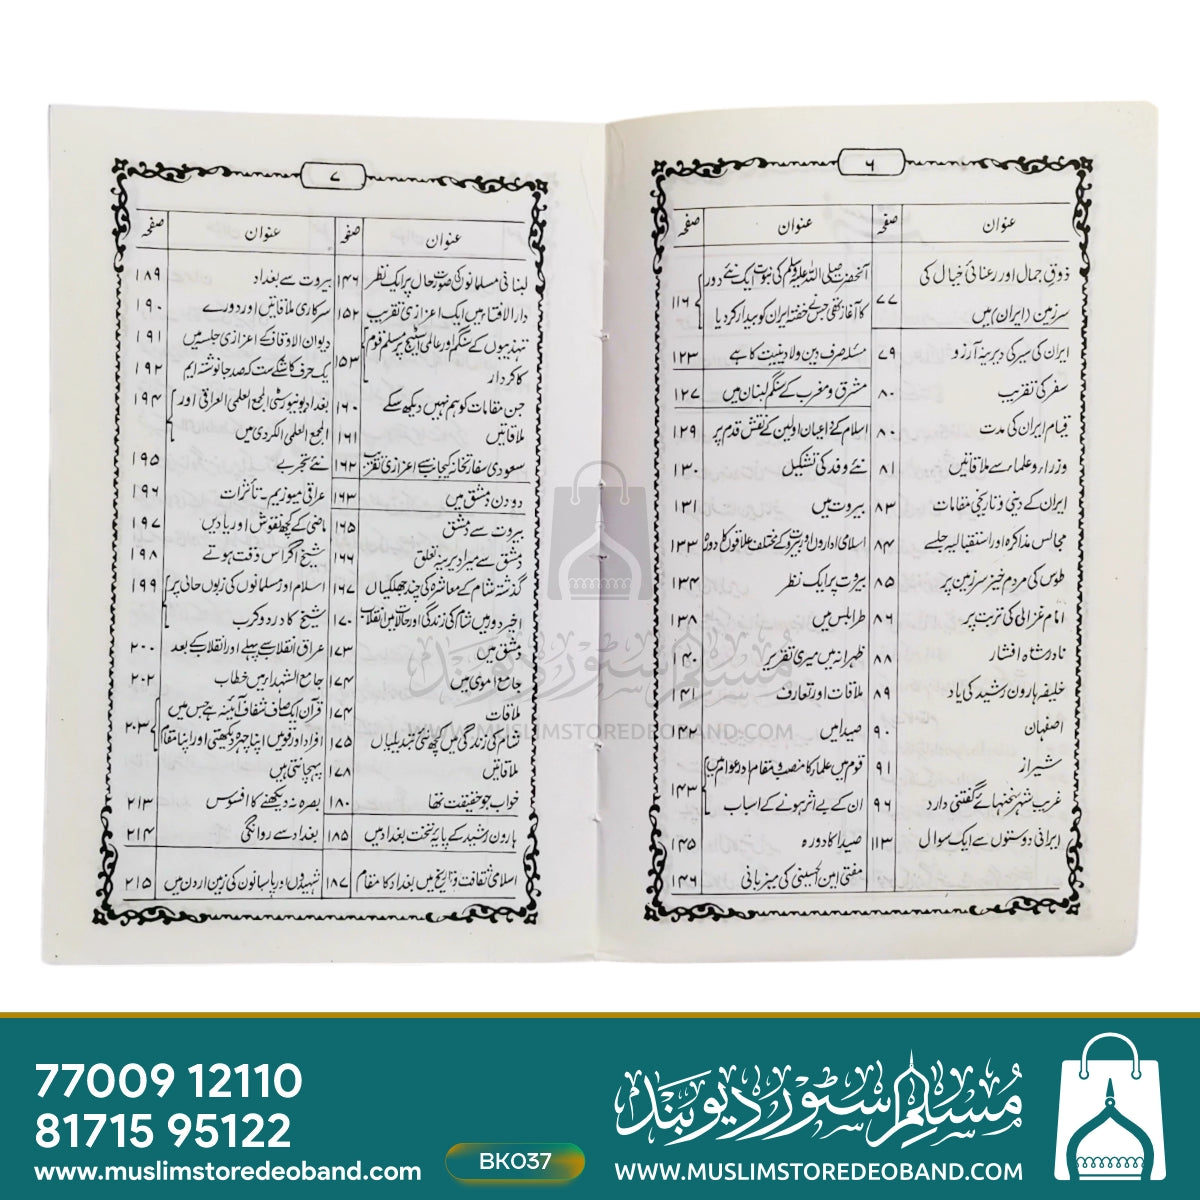 ۶
عنوان صفحہ
ذوقِ جمال اور رعنائیِ خیال کی
سرزمین (ایران) میں ۷۷
ایران کی سیر کی دیرینہ آرزو ۷۹
سفر کی تقریب ۸۰
قیام ایران کی مدت ۸۰
وزراء وعلماء سے ملاقاتیں ۸۱
ایران کے دینی و تاریخی مقامات ۸۳
مجالس مذاکرہ اور استقبالیہ جلسے ۸۴
طوس کی مردم خیز سرزمین پر ۸۵
امام غزالی کی تربت پر ۸۶
نادر شاہ افشار ۸۸
خلیفہ ہارون رشید کی یاد ۸۹
اصفہان ۹۰
شیراز ۹۱
غریب شہر سخنہائے گفتنی دارد ۹۶
ایرانی دوستوں سے ایک سوال ۱۱۳
عنوان صفحہ
آنحضرت صلی اللہ علیہ وسلم کی نبوت ایک نئے دور
کا آغاز تھی جس نے خفتہ ایران کو بیدار کر دیا ۱۱۶
مسئلہ صرف دین ولادینیت کا ہے ۱۲۳
مشرق و مغرب کے سنگم لبنان میں ۱۲۷
اسلام کے داعیان اولین کے نقش قدم پر ۱۲۹
نئے وفد کی تشکیل ۱۳۰
بیروت میں ۱۳۱
اسلامی اداروں اور بیروت کے مختلف علاقوں کا دورہ ۱۳۳
بیروت پر ایک نظر ۱۳۴
طرابلس میں ۱۳۸
ظہرانہ میں میری تقریر ۱۴۰
ملاقات اور تعارف ۱۴۱
صیدا میں ۱۴۲
قوم میں علماء کا منصب و مقام اور عوام میں
ان کے بے اثر ہونے کے اسباب ۱۴۳
صیدا کا دورہ ۱۴۵
مفتی امین الحسینی کی میزبانی ۱۴۶
۷
عنوان صفحہ
لبنانی مسلمانوں کی صورت حال پر ایک نظر ۱۴۶
دارالافتاء میں ایک اعزازی تقریب ۱۵۲
تہذیبوں کے سنگم اور عالمی اسٹیج پر مسلم قوم
کا کردار ۱۵۳
جن مقامات کو ہم نہیں دیکھ سکے ۱۶۰
ملاقاتیں ۱۶۱
سعودی سفارتخانہ کی جانب سے اعزازی تقریب ۱۶۲
دو دن دمشق میں ۱۶۳
بیروت سے دمشق ۱۶۵
دمشق سے میرا دیرینہ تعلق ۱۶۶
گذشتہ شام کے معاشرہ کی چند جھلکیاں ۱۶۷
اخیر دور میں شام کی زندگی اور حالات میں انقلاب ۱۷۰
دمشق میں ۱۷۳
جامع اموی میں ۱۷۴
ملاقات ۱۷۴
شام کی زندگی میں کچھ نئی تبدیلیاں ۱۷۵
ملاقاتیں ۱۷۸
خواب جو حقیقت تھا ۱۸۰
ہارون رشید کے پایۂ تخت بغداد میں ۱۸۵
اسلامی ثقافت و تاریخ میں بغداد کا مقام ۱۸۷
عنوان صفحہ
بیروت سے بغداد ۱۸۹
سرکاری ملاقاتیں اور دورے ۱۹۰
دیوان الاوقاف کے اعزازی جلسہ میں ۱۹۱
یک حرف کاشکے ست کہ صد جا نوشتہ ایم ۱۹۲
بغداد یونیورسٹی المجمع العلمی العراقی اور
المجمع العلمی الکردی میں ۱۹۴
نئے تجربے ۱۹۵
عراقی میوزیم - تأثرات ۱۹۶
ماضی کے کچھ نقوش اور یادیں ۱۹۷
شیخ اگر اس وقت ہوتے ۱۹۸
اسلام اور مسلمانوں کی زبوں حالی پر
شیخ کا درد و کرب ۱۹۹
عراق انقلاب سے پہلے اور انقلاب کے بعد ۲۰۰
جامع الشہداء میں خطاب ۲۰۲
قرآن ایک صاف شفاف آئینہ ہے جس میں
افراد اور قومیں اپنا چہرہ دیکھتی اور اپنا مقام
پہچانتی ہیں ۲۰۳
بصرہ نہ دیکھنے کا افسوس ۲۱۳
بغداد سے روانگی ۲۱۴
شہیدوں اور پاسبانوں کی زمین اردن میں ۲۱۵
مسلم سٹور دیوبند
WWW.MUSLIMSTOREDEOBAND.COM
77009 12110
81715 95122
www.muslimstoredeoband.com
BK037
مسلم سٹور دیوبند
WWW.MUSLIMSTOREDEOBAND.COM